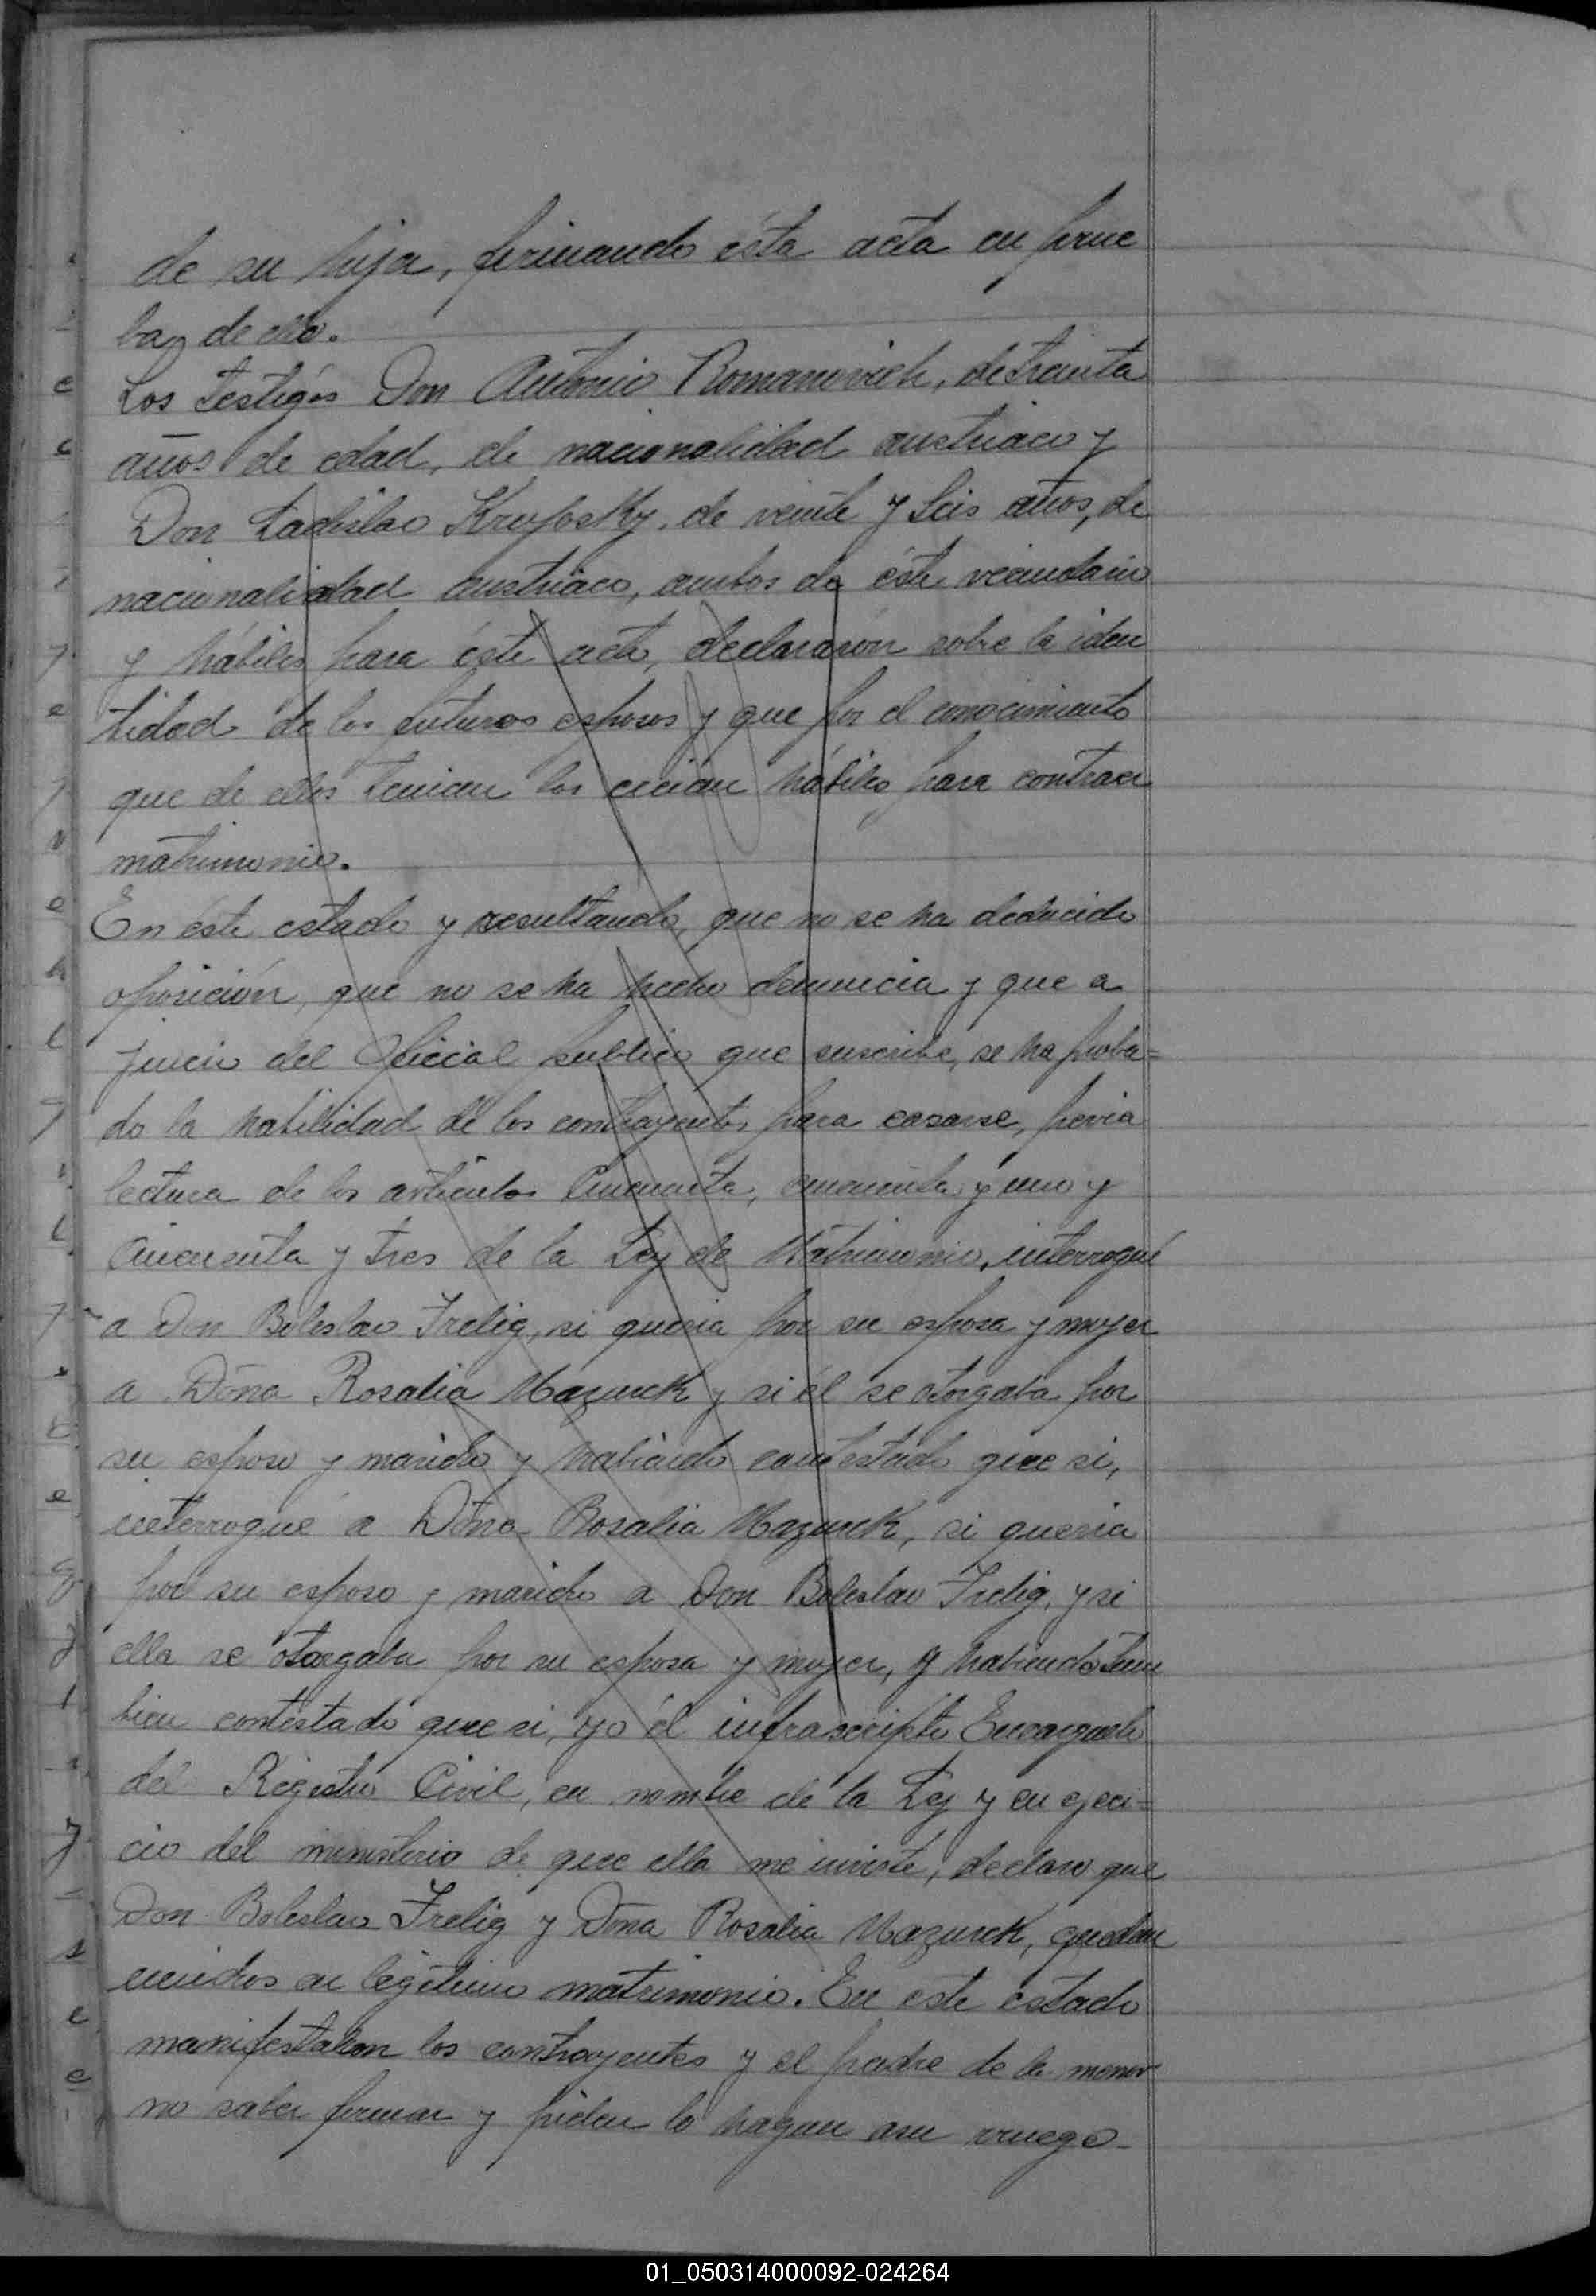 de su hija, firmando ésta acta en prue
ba, de ello.
Los testigos Don Antonio Romanovich, de treinta
años de edad, de nacionalidad austriaco y
Don Ladislao Kruposky, de veinte y seis años, de
nacionalidad austriaco, ambos de éste vecindario
y hábiles para éste acto, declararón sobre la iden
tidad de los futuros esposos y que por el conocimiento
que de ellos tenian los creían hábiles para contraer
matrimonio.
En éste estado y resultando, que no se ha deducido
oposición, que no se ha hecho denuncia y que a
juicio del Oficial publico que suscribe, se ha proba=
do la habilidad de los contrayentes para casarse, previa
lectura de los articulos Cincuenta, cincuenta y uno y
Cincuenta y tres de la Ley de Matrimonio, interrogué
a Don Boleslao Frelig, si queria por su esposa y mujer
a Doña Rosalia Mazurek y si él se otorgaba por
su esposo y marido y habiendo contestado que si,
interrogué a Doña Rosalia Mazurek, si queria
por su esposo y marido a Don Boleslao Frelig, y si
ella se otorgaba por su esposa y mujer, y habiendo tam
bien contestado que si, yo él infrascripto Encargado
del Registro Civil, en nombre de la Ley y en ejerci=
cio del ministerio de que ella me inviste, declaro que
Don Boleslao Frelig y Doña Rosalia Mazurek, quedan
unidos en legitimo matrimonio. En este estado
manifestaron los contrayentes y el padre de la menor
no saber firmar y piden lo hagan asu ruego
01_050314000092-024264